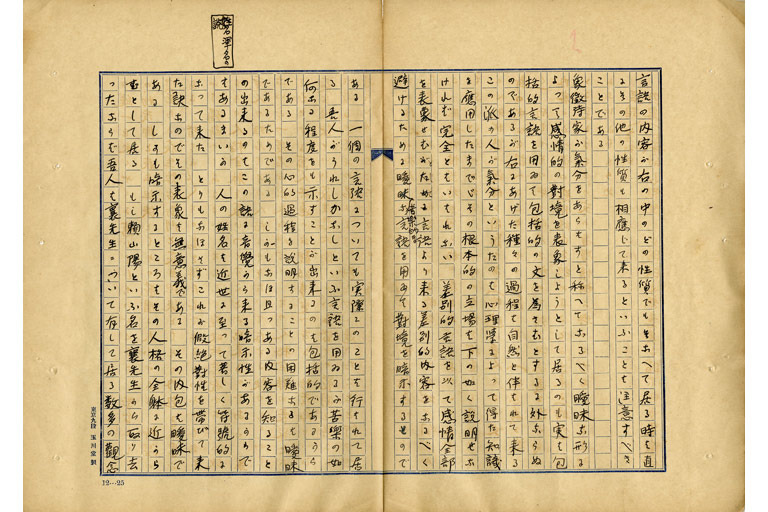 言語の内容が右の中のどの性質でもそなへて居る時を直
にその他の性質も相應じて来るといふことを注意すべき
ことである
象徴詩家が気分をあらはすと称へてなるべく曖昧な形に
よって感情的の對境を表象しようとして居るのも実は包
括的言語を用ゐて包括的の文を為さむとするに外ならぬ
のであるが右にあげた種々の過程を自然と伴はれて来る
この派の人が気分といったのを心理学によって得た知識
を應用したまででその根本的の立場を下の如く説明せむ
ければ完全とはいはれない 差別的言語を以て感情全部
を表象せむがためには言語より来る差別的内容をなるべく
避けるために曖昧な言語を用ゐて對境を暗示するもので
ある 一個の言語についても実際このことを行はれて居
る 吾人がうれしかなしといふ言語を用ゐるが苦樂の如
何なる程度をも示すことが出来るのも包括的であるから
である その心的過程を説明することの困難なるも曖昧
であるためである しかもなほ且つある内容を知ること
の出来るのもこの語の音覚から来る暗示性があるからで
もあるまいか 人の姓名も近世に至って著しく符號的に
なって来た とりもなほさずこれが假絶對性を帯びて来
た訳なのでその表象は無意義である その内包も曖昧で
ある しかも暗示するところはその人格の全躰に近から
むとして居る もし頼山陽といふ名を襄先生から取り去
ったならば吾人は襄先生について有して居る数多の觀念
東京九段 玉川堂製
12…25